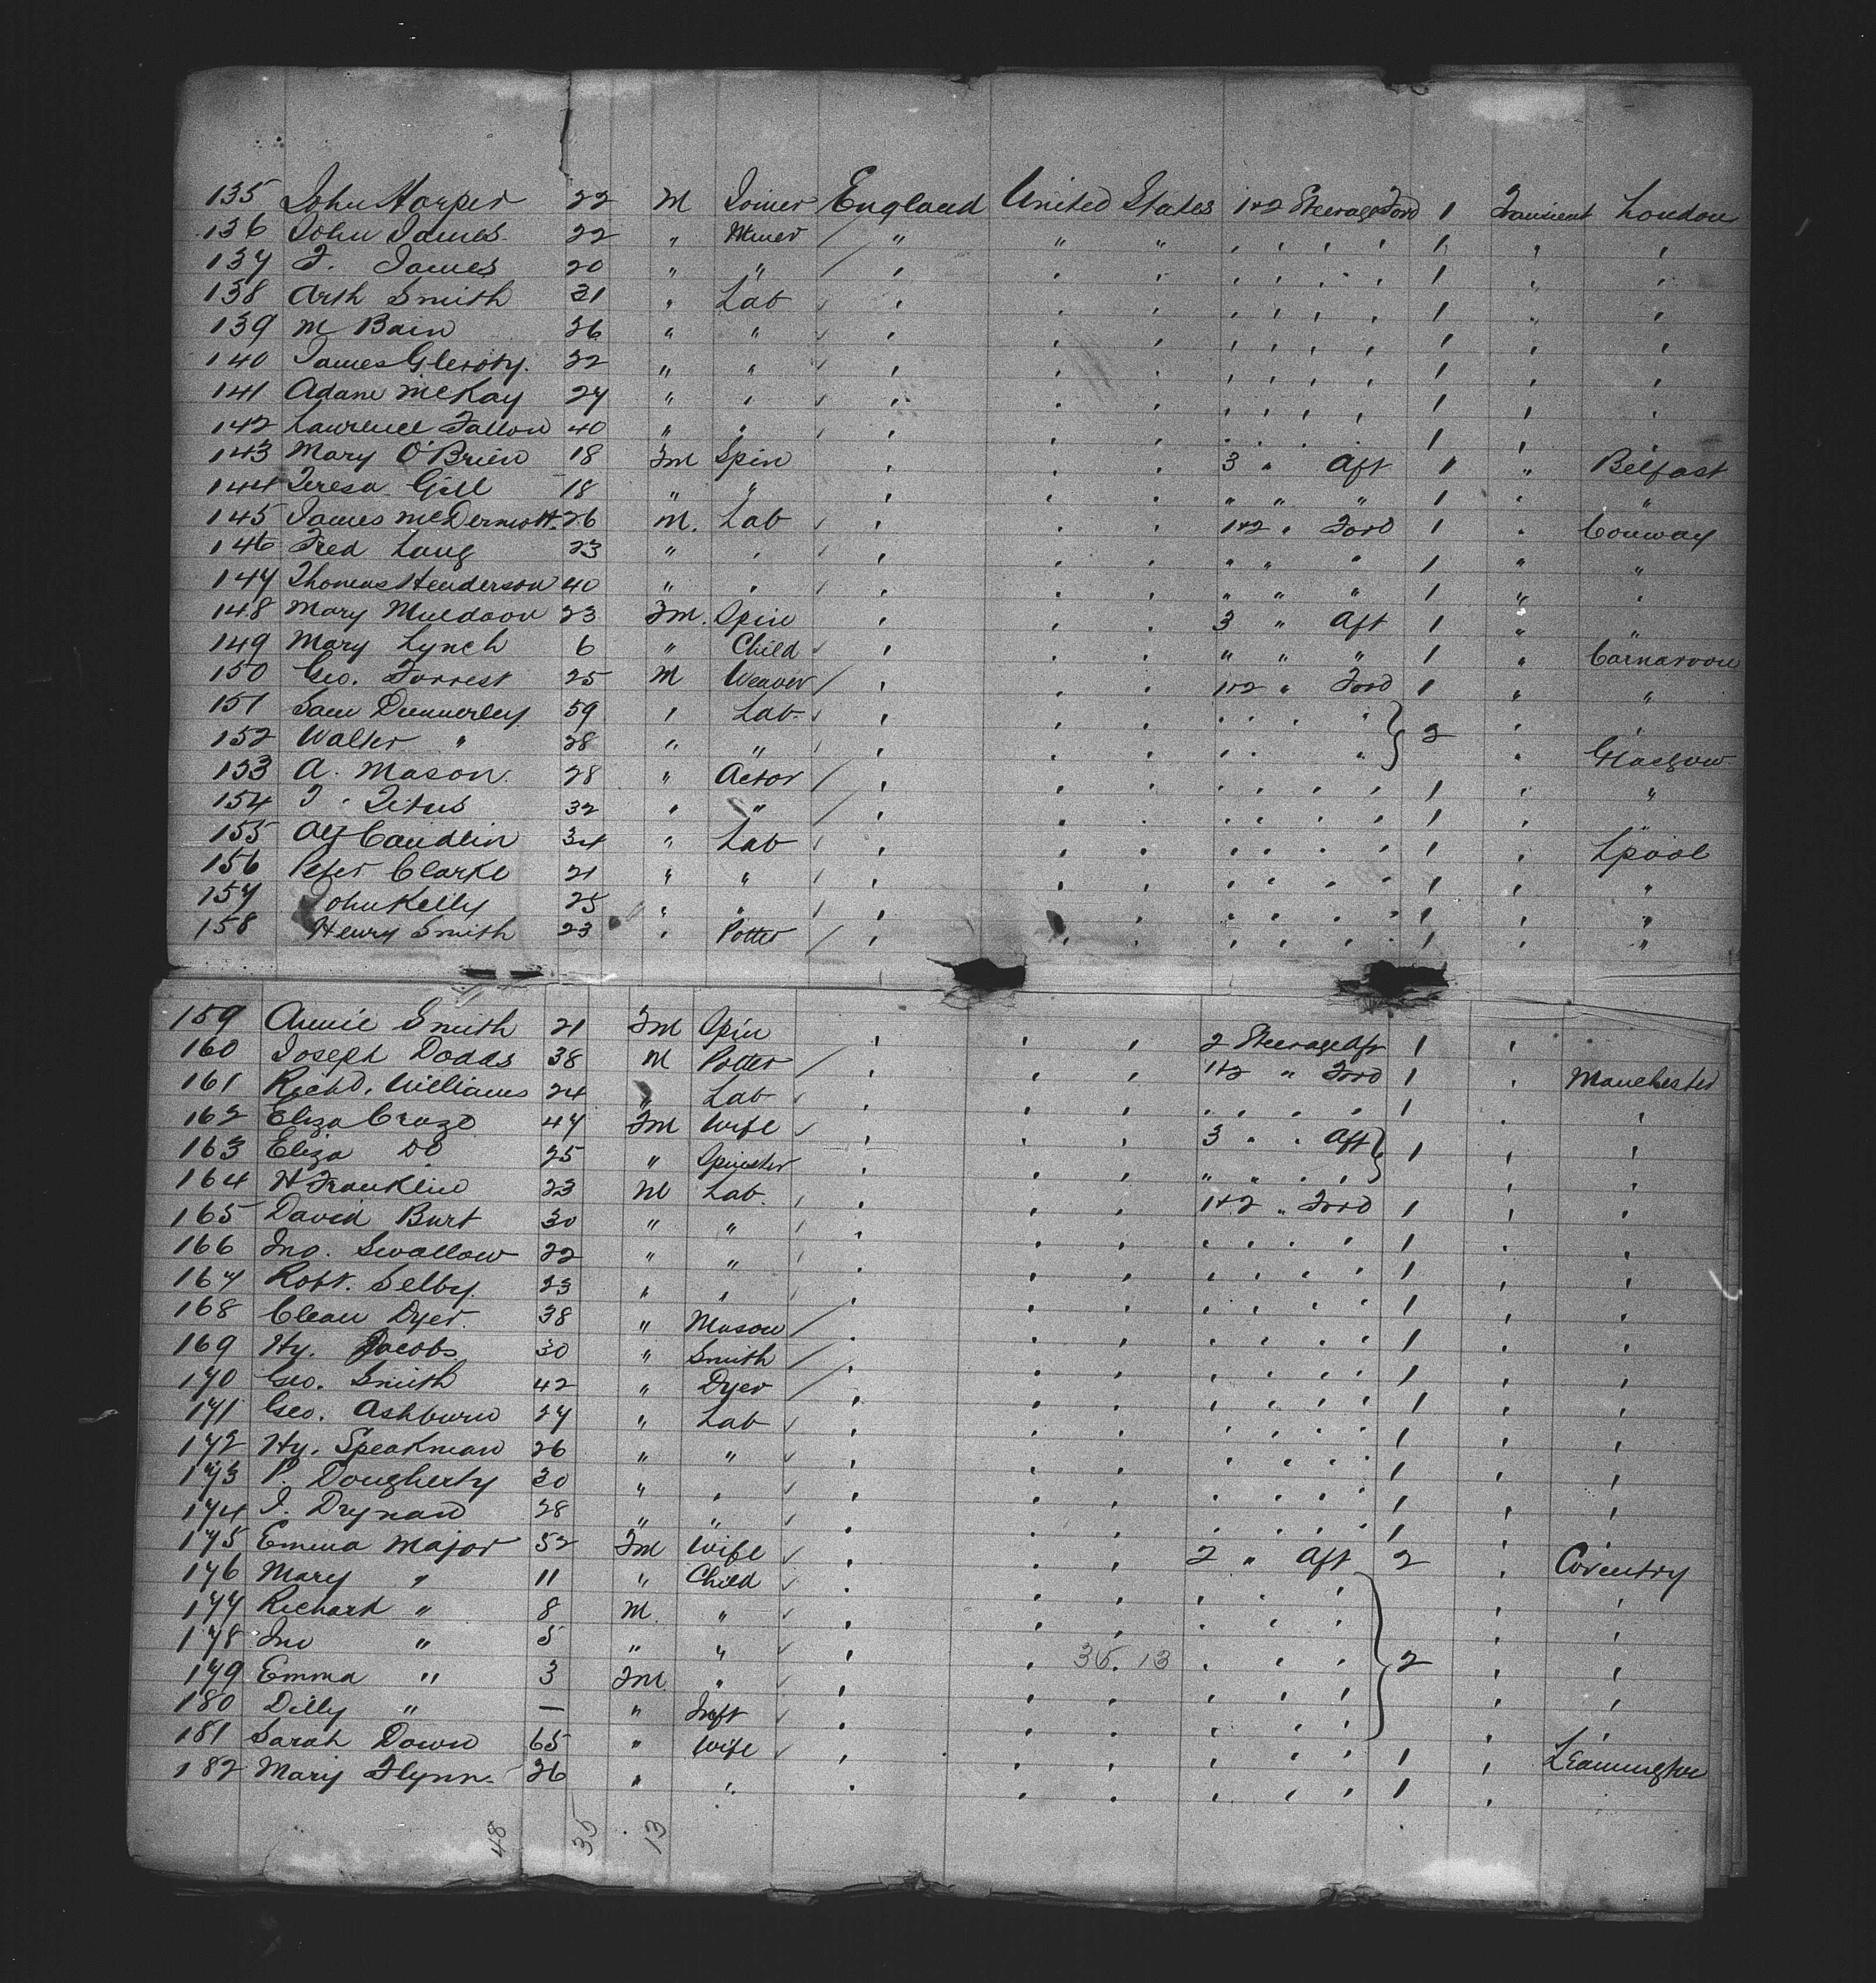 135 John Harper 22 M Joiner England United States 1+2 Steerage Ford 1 Transient London
136 John James 22 " Miner / " " " ' ' ' ' 1 ' '
137 T. James 20 " " / ' ' ' ' ' ' ' 1 ' '
138 Arth Smith 31 ' Lab ✓ ' ' ' ' ' ' ' 1 ' '
139 M Bain 26 " " ✓ ' ' ' ' ' ' ' 1 ' '
140 James 22 " " ✓ ' ' ' ' ' ' ' 1 ' '
141 Adam McKay 27 " ' ✓ ' ' ' ' ' ' ' 1 ' '
142 Laurence Fallon 40 " " ' ' ' ' ' ' ' ' 1 ' '
143 Mary O'Brien 18 Fm Spin ' ' ' 3 " Aft 1 " Belfast
144 Teresa Gill 18 " " ' ' ' " " " 1 ' "
145 James McDermott. 26 M. Lab ✓ ' ' ' 1+2 " Ford 1 ' Conway
146 Fred Lang 23 " ' ' ' ' ' " " " 1 " "
147 Thomas Henderson 40 " ' ' ' ' ' " " " 1 " '
148 Mary Muldoon 23 Fm. Spin ' ' ' 3 " Aft 1 " "
149 Mary Lynch 6 " Child ✓ ' ' ' " " " 1 " Carnarvon
150 Geo. Forrest 25 M Weaver / ' ' ' 1+2 " Ford 1 " "
151 Sam Dunnerley 59 ' Lab. ✓ ' ' ' ' ' ' ' } 2 ' '
152 Walter " 28 " " ' ' ' ' ' ' ' ' Glasgow
153 A. Mason 28 " Actor / ' ' ' ' ' ' ' 1 ' "
154 T. Titus 32 ' " / ' ' ' ' ' ' ' 1 ' "
155 Alf Caudlin 34 " Lab ✓ ' ' ' ' ' ' ' 1 ' Lpool
156 Peter Clarke 21 " " ' ' ' ' ' ' ' ' 1 ' "
157 John Kelly 25 ' " ' ' ' ' ' ' ' ' 1 ' "
158 Henry Smith 23 ' Potter / ' ' ' ' ' ' ' 1 ' "
159 Annie Smith 21 Fm Spin ' ' ' 2 Steerage Aft 1 '
160 Joseph Dodds 38 M Potter / ' ' ' 1+2 " Ford 1 ' Manchester
161 Richd. Williams 24 " Lab ✓ ' ' ' ' ' ' ' 1 ' '
162 Eliza Craze 47 Fm Wife ✓ ' ' ' 3 " " Aft } 1 ' '
163 Eliza Do 25 " Spinster ' ' ' " " ' ' ' '
164 H Franklin 23 M Lab. ' ' ' ' 1+2 " Ford 1 ' '
165 David Burt 30 " " ' ' ' ' ' ' ' ' 1 ' '
166 Jno. Swallow 22 " " ' ' ' ' ' ' ' ' 1 ' '
167 Robt. Selby. 23 " ' ' ' ' ' ' ' ' ' 1 ' '
168 Clean Dyer. 38 " Mason / ' ' ' ' ' ' ' 1 ' '
169 Hy. Jacobs 30 " Smith / ' ' ' ' ' ' ' 1 ' '
170 Geo. Smith 42 " Dyer / ' ' ' ' ' ' ' 1 ' '
171 Geo. Ashburn 27 " Lab ✓ ' ' ' ' ' ' ' 1 ' '
172 Hy. Speakman 26 " " ✓ ' ' ' ' ' ' ' 1 ' '
173 P. Dougherty 30 " ' ✓ ' ' ' ' ' ' ' 1 ' '
174 J. Drynan 28 " " ✓ ' ' ' ' ' ' ' 1 ' '
175 Emma Major 52 Fm Wife ✓ ' ' ' 2 " Aft 2 ' Coventry
176 Mary " 11 " Child ✓ ' ' ' ' ' ' ' '
177 Richard " 8 M. " ✓ ' ' ' ' ' ' ' '
178 Jno " 5 " " ✓ ' ' 35. 13 ' ' ' } 2 ' '
179 Emma " 3 Fm " ✓ ' ' ' ' ' ' ' '
180 Dilly " — " Inft ✓ ' ' ' ' ' ' ' '
181 Sarah Down 65 " Wife ✓ ' ' ' ' ' ' 1 ' Leamington
182 Mary Flynn. 26 " " ' ' ' ' ' ' 1 '
48 35 . 13